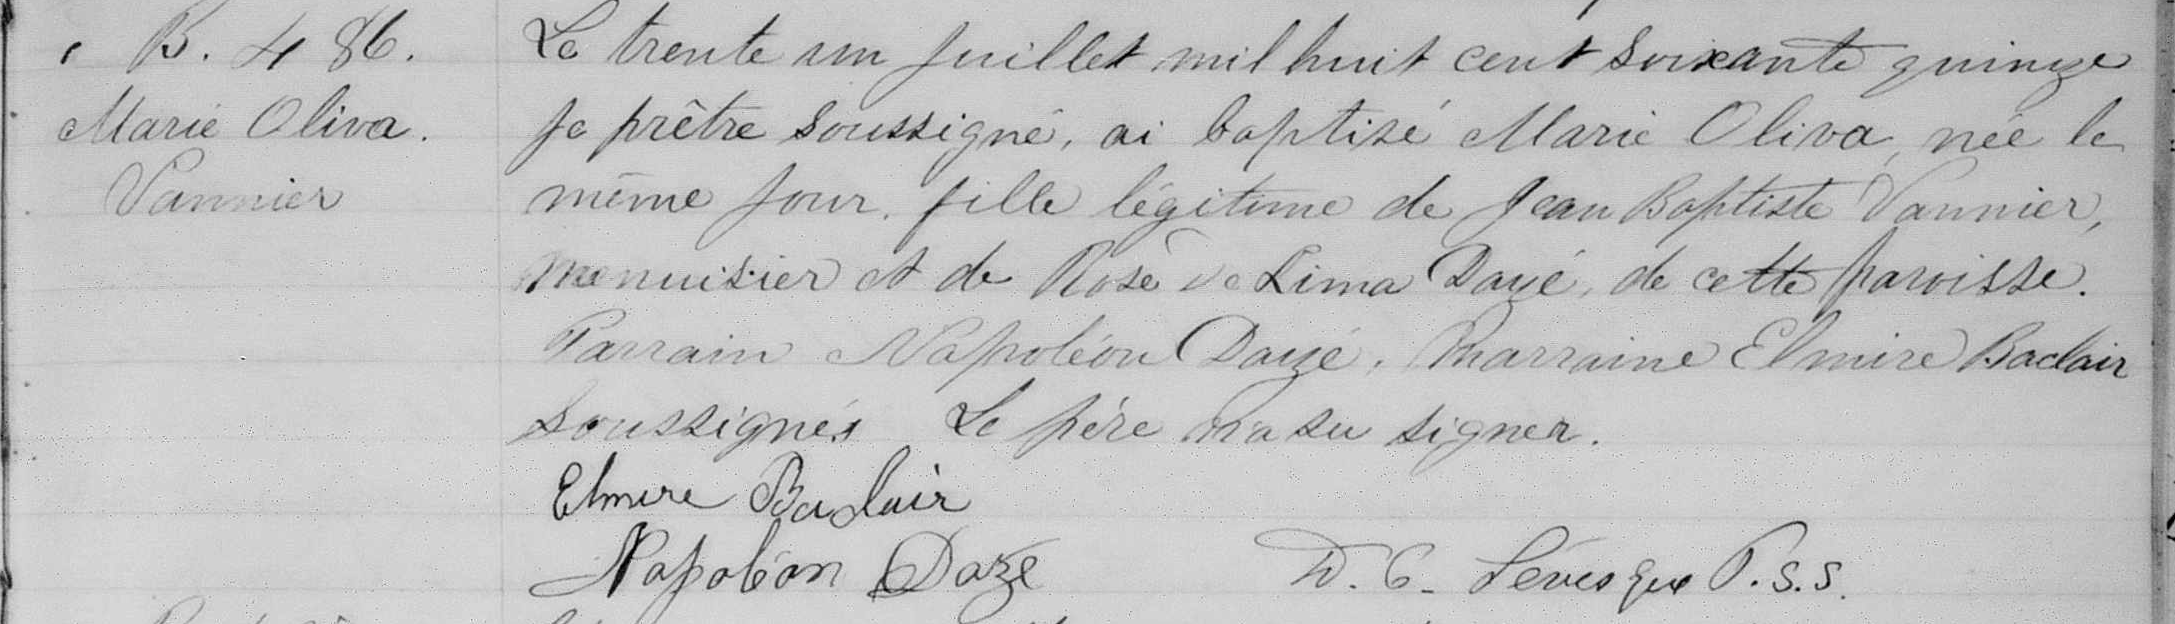 B. 486.
Marie Oliva.
Vannier
Le trente un Juillet mil huit cent soixante quinze
Je prêtre soussigné, ai baptisé Marie Oliva, née le
même jour, fille légitime de Jean Baptiste Vannier,
menuisier et de Rose de Lima Dazé, de cette paroisse.
Parrain Napoléon Dazé, Marraine Elmire Baclair
soussignés Le père n'a su signer.
Elmire Baclair
Napoléon Daze
Lévesque P.S.S.